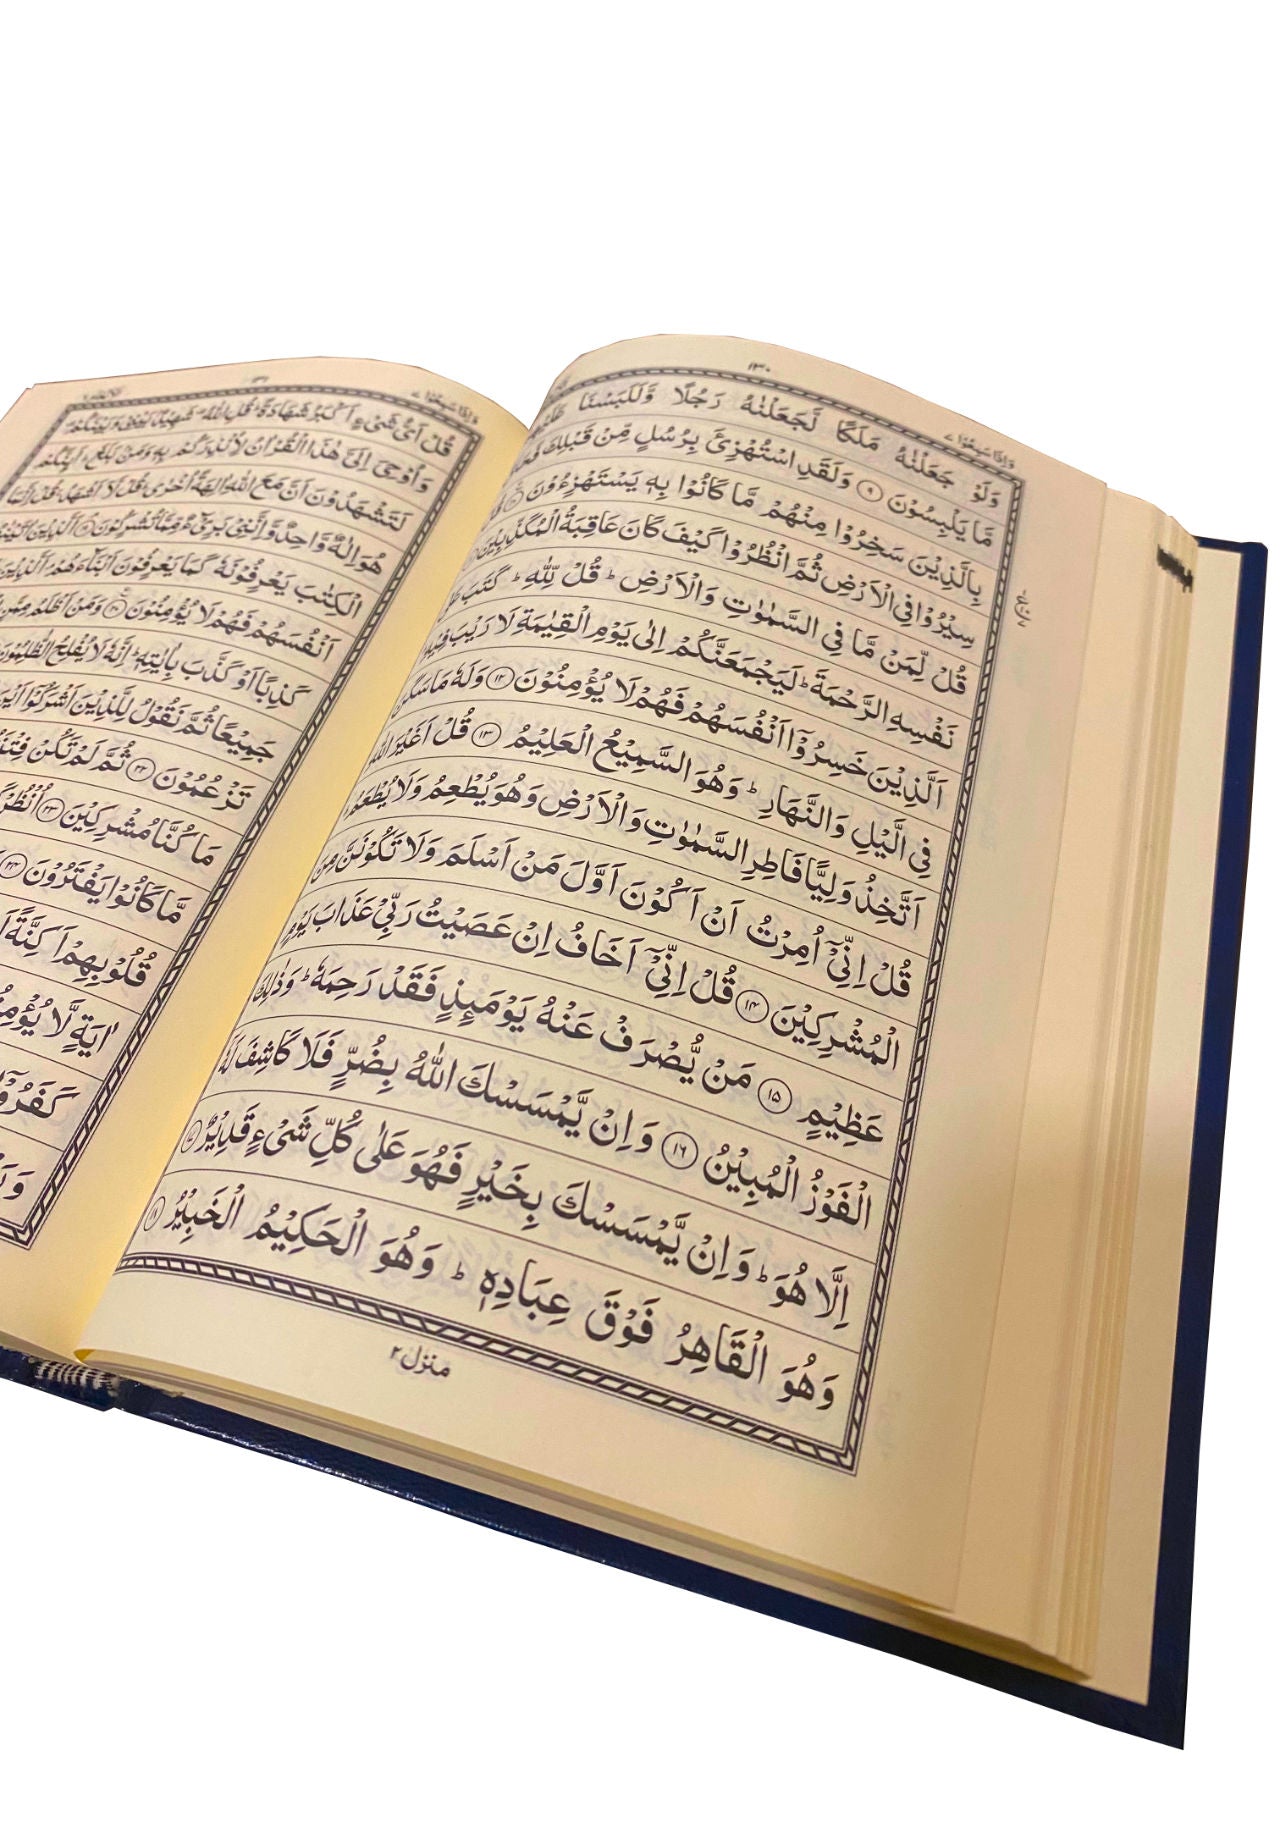 ١٣٠
وَاِذَا سَمِعُوْا ٧
وَلَوْ جَعَلْنٰهُ مَلَكًا لَّجَعَلْنٰهُ رَجُلًا وَّلَلَبَسْنَا
مَّا يَلْبِسُوْنَ ۹ وَلَقَدِ اسْتُهْزِئَ بِرُسُلٍ مِّنْ قَبْلِكَ
بِالَّذِيْنَ سَخِرُوْا مِنْهُمْ مَّا كَانُوْا بِهٖ يَسْتَهْزِءُوْنَ
سِيْرُوْا فِي الْاَرْضِ ثُمَّ انْظُرُوْا كَيْفَ كَانَ عَاقِبَةُ الْمُكَذِّبِيْنَ
قُلْ لِّمَنْ مَّا فِي السَّمٰوٰتِ وَالْاَرْضِ ؕ قُلْ لِّلّٰهِ ؕ كَتَبَ
نَفْسِهِ الرَّحْمَةَ ؕ لَيَجْمَعَنَّكُمْ اِلٰى يَوْمِ الْقِيٰمَةِ لَا رَيْبَ فِيْهِ
اَلَّذِيْنَ خَسِرُوْۤا اَنْفُسَهُمْ فَهُمْ لَا يُؤْمِنُوْنَ ۱۲ وَلَهٗ مَا سَكَنَ
فِي الَّيْلِ وَالنَّهَارِ ؕ وَهُوَ السَّمِيْعُ الْعَلِيْمُ ۱۳ قُلْ اَغَيْرَ اللّٰهِ
اَتَّخِذُ وَلِيًّا فَاطِرِ السَّمٰوٰتِ وَالْاَرْضِ وَهُوَ يُطْعِمُ وَلَا يُطْعَمُ
قُلْ اِنِّيْۤ اُمِرْتُ اَنْ اَكُوْنَ اَوَّلَ مَنْ اَسْلَمَ وَلَا تَكُوْنَنَّ مِنَ
الْمُشْرِكِيْنَ ۱۴ قُلْ اِنِّيْۤ اَخَافُ اِنْ عَصَيْتُ رَبِّيْ عَذَابَ يَوْمٍ
عَظِيْمٍ ۱۵ مَنْ يُّصْرَفْ عَنْهُ يَوْمَىِٕذٍ فَقَدْ رَحِمَهٗ ؕ وَذٰلِكَ
الْفَوْزُ الْمُبِيْنُ ۱۶ وَاِنْ يَّمْسَسْكَ اللّٰهُ بِضُرٍّ فَلَا كَاشِفَ لَهٗۤ
اِلَّا هُوَ ؕ وَاِنْ يَّمْسَسْكَ بِخَيْرٍ فَهُوَ عَلٰى كُلِّ شَيْءٍ قَدِيْرٌ ۱۷
وَهُوَ الْقَاهِرُ فَوْقَ عِبَادِهٖ ؕ وَهُوَ الْحَكِيْمُ الْخَبِيْرُ ۱۸
منزل ٢
وَاِذَا سَمِعُوْا ٧
قُلْ اَيُّ شَيْءٍ اَكْبَرُ شَهَادَةً ؕ قُلِ اللّٰهُ شَهِيْدٌۢ بَيْنِيْ وَبَيْنَكُمْ
وَاُوْحِيَ اِلَيَّ هٰذَا الْقُرْاٰنُ لِاُنْذِرَكُمْ بِهٖ وَمَنْۢ بَلَغَ ؕ اَىِٕنَّكُمْ
لَتَشْهَدُوْنَ اَنَّ مَعَ اللّٰهِ اٰلِهَةً اُخْرٰى ؕ قُلْ لَّاۤ اَشْهَدُ ؕ قُلْ اِنَّمَا
هُوَ اِلٰهٌ وَّاحِدٌ وَّاِنَّنِيْ بَرِيْٓءٌ مِّمَّا تُشْرِكُوْنَ ۱۹ اَلَّذِيْنَ
الْكِتٰبَ يَعْرِفُوْنَهٗ كَمَا يَعْرِفُوْنَ اَبْنَآءَهُمْ اَلَّذِيْنَ
اَنْفُسَهُمْ فَهُمْ لَا يُؤْمِنُوْنَ ۲۰ وَمَنْ اَظْلَمُ مِمَّنِ
كَذِبًا اَوْ كَذَّبَ بِاٰيٰتِهٖ ؕ اِنَّهٗ لَا يُفْلِحُ الظّٰلِمُوْنَ
جَمِيْعًا ثُمَّ نَقُوْلُ لِلَّذِيْنَ اَشْرَكُوْۤا
تَزْعُمُوْنَ ۲۲ ثُمَّ لَمْ تَكُنْ
مَا كُنَّا مُشْرِكِيْنَ ۲۳
مَّا كَانُوْا يَفْتَرُوْنَ ۲۴
قُلُوْبِهِمْ اَكِنَّةً
اٰيَةٍ لَّا